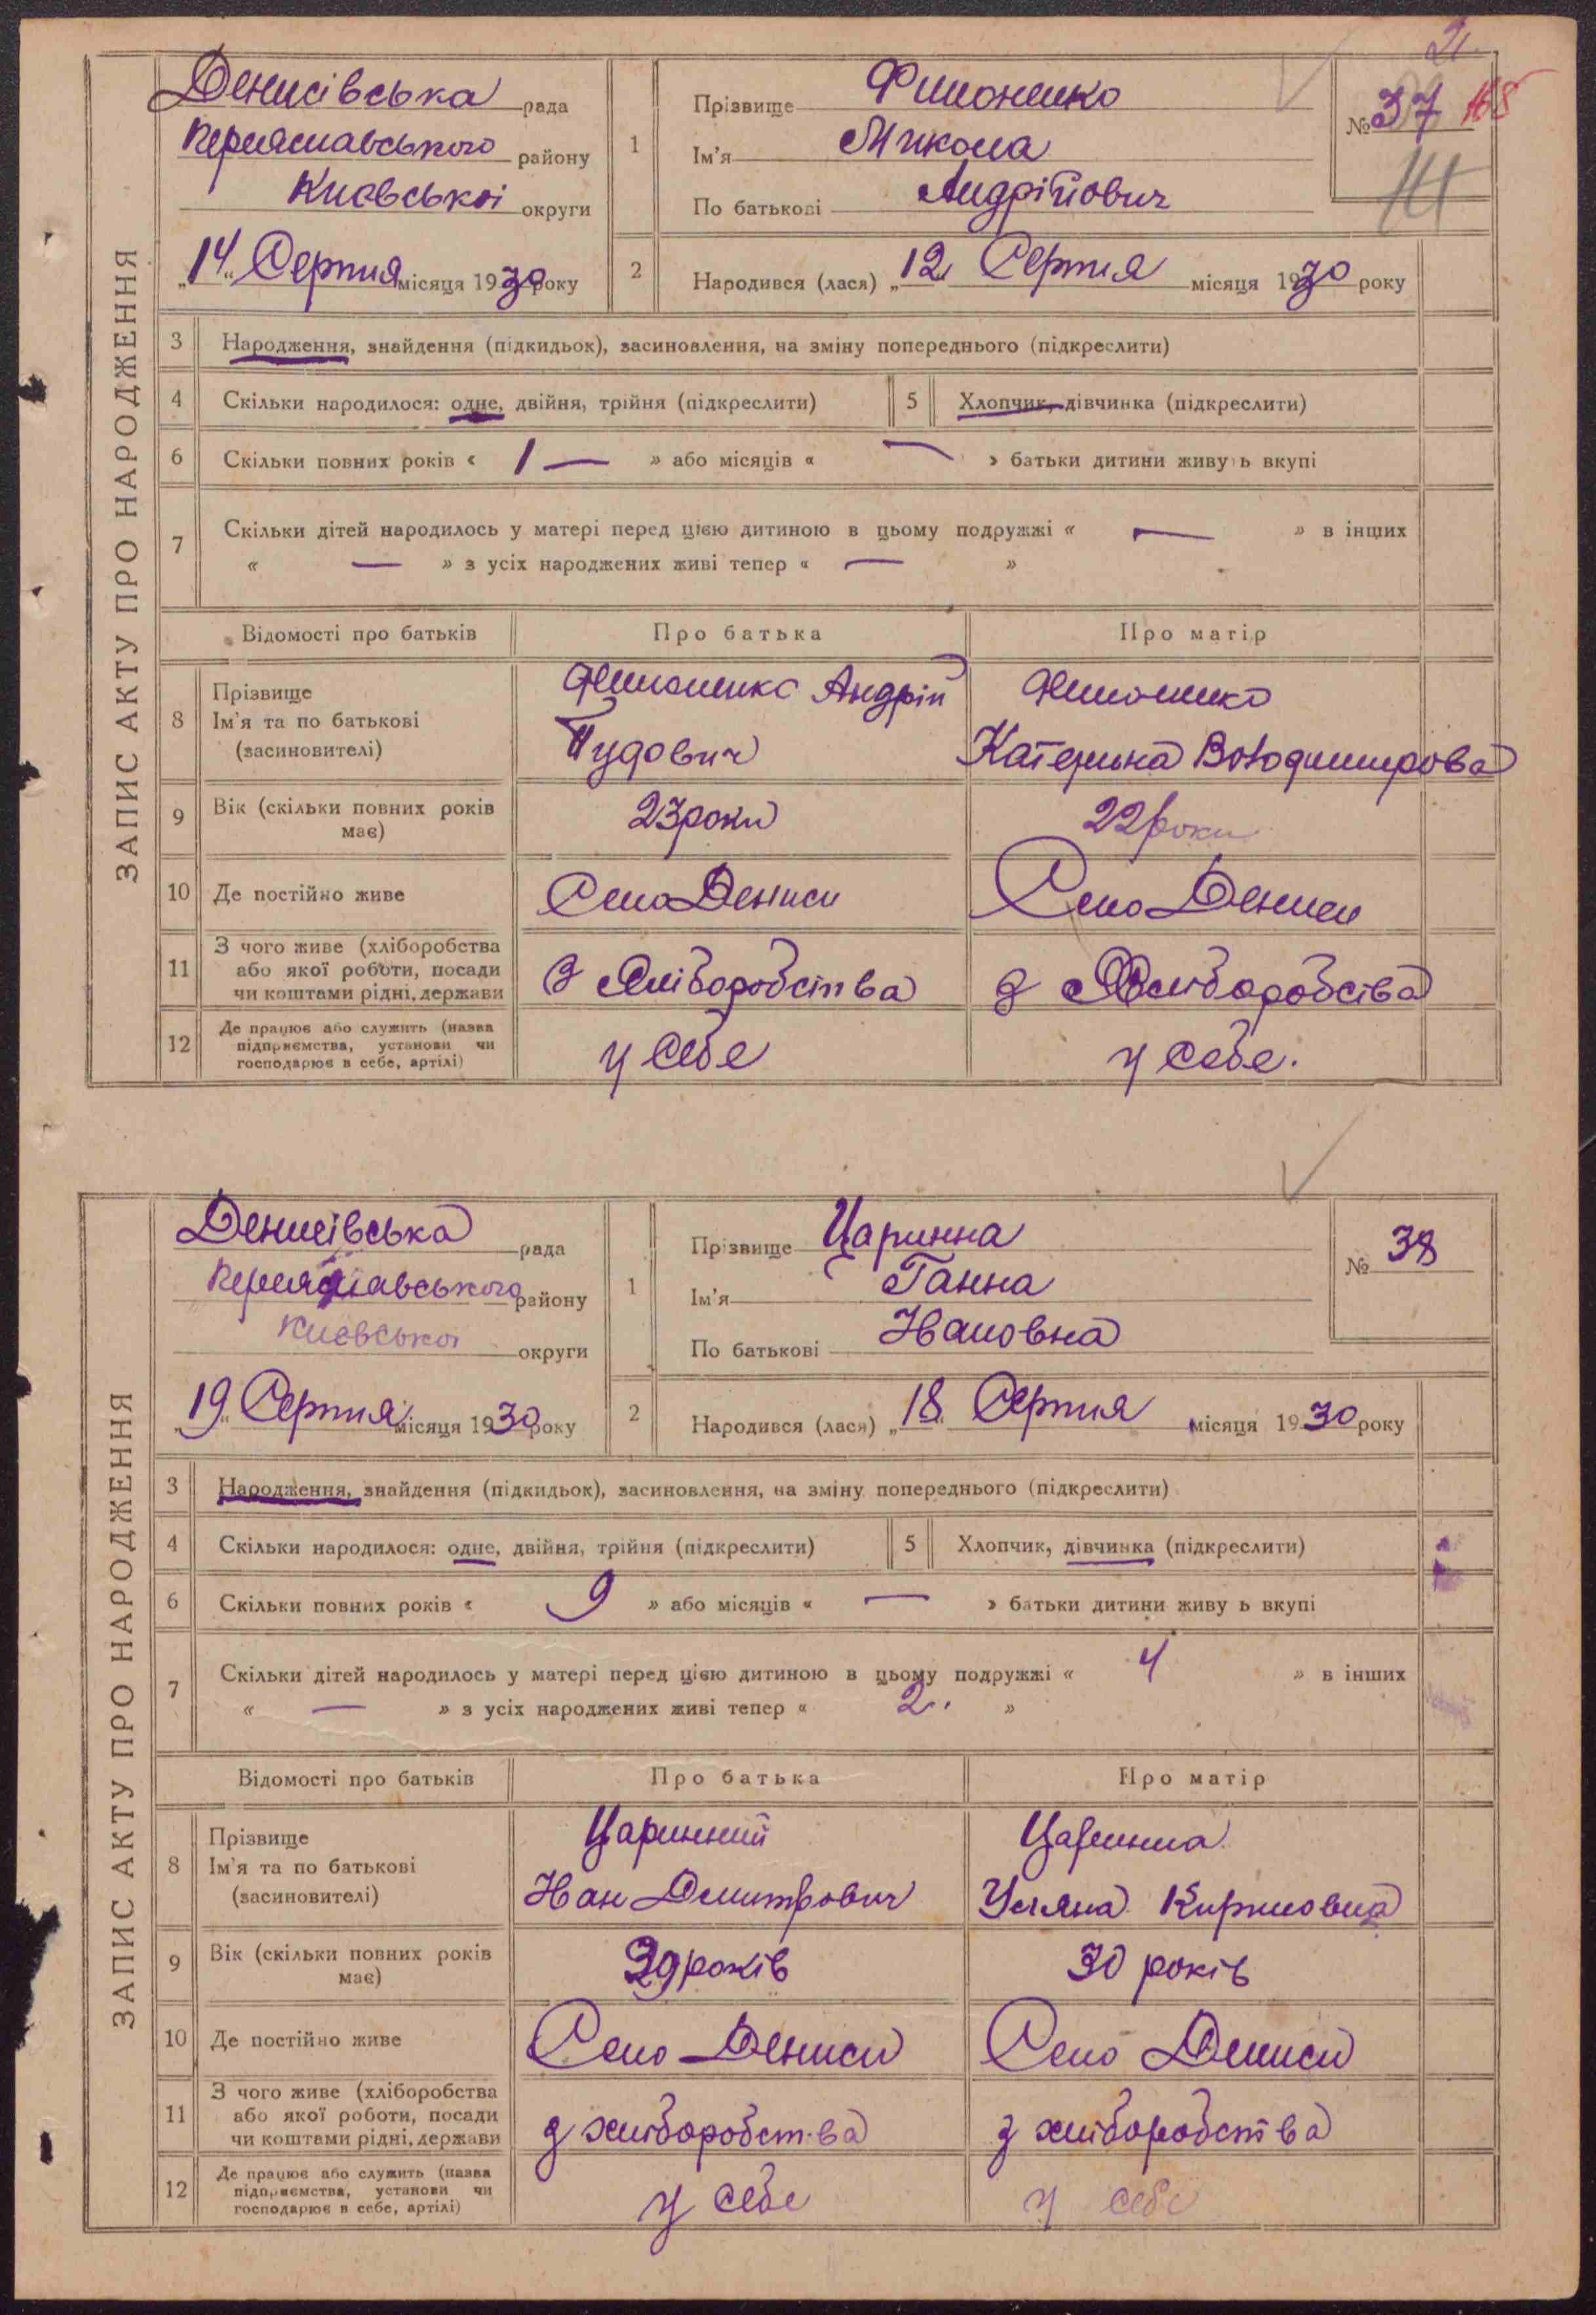 ЗАПИС АКТУ ПРО НАРОДЖЕННЯ
Денисівська рада
Переяславського району
Києвської округи
„14“ Серпня місяця 1930 року
1
Прізвище Филоненко
Ім'я Микола
По батькові Андрійович
№ 37 168
2
Народився (лася) „12 Серпня місяця 1930 року
3 Народження, знайдення (підкидьок), засиновлення, на зміну попереднього (підкреслити)
4 Скільки народилося: одне, двійня, трійня (підкреслити) 5 Хлопчик, дівчинка (підкреслити)
6 Скільки повних років « 1 — » або місяців « — » батьки дитини живуть вкупі
7 Скільки дітей народилось у матері перед цією дитиною в цьому подружжі « — » в інших
« — » з усіх народжених живі тепер « — »
Відомості про батьків Про батька Про матір
8 Прізвище
Ім'я та по батькові
(засиновителі)
Филоненко Андрій
Тудович
Филоненко
Катерина Володимирова
9 Вік (скільки повних років
має)
23 роки 22 роки
10 Де постійно живе Село Дениси Село Дениси
11 З чого живе (хліборобства
або якої роботи, посади
чи коштами рідні, держави
З Хліборобства з Хліборобства
12 Де працює або служить (назва
підприємства, установи чи
господарює в себе, артілі)
у себе у себе.
ЗАПИС АКТУ ПРО НАРОДЖЕННЯ
Денисівська рада
Переяславського району
Києвської округи
„19“ Серпня місяця 1930 року
1
Прізвище Царинна
Ім'я Ганна
По батькові Івановна
№ 38
2
Народився (лася) „18“ Серпня місяця 1930 року
3 Народження, знайдення (підкидьок), засиновлення, на зміну попереднього (підкреслити)
4 Скільки народилося: одне, двійня, трійня (підкреслити) 5 Хлопчик, дівчинка (підкреслити)
6 Скільки повних років « 9 » або місяців « — » батьки дитини живуть вкупі
7 Скільки дітей народилось у матері перед цією дитиною в цьому подружжі « 4 » в інших
« — » з усіх народжених живі тепер « 2.. »
Відомості про батьків Про батька Про матір
8 Прізвище
Ім'я та по батькові
(засиновителі)
Царинний
Іван Дмитрович
Царинна
Уляна Кириловна
9 Вік (скільки повних років
має)
років 30 років
10 Де постійно живе Село Дениси Село Дениси
11 З чого живе (хліборобства
або якої роботи, посади
чи коштами рідні, держави
з хліборобства з хліборобства
12 Де працює або служить (назва
підприємства, установи чи
господарює в себе, артілі)
у себе у себе